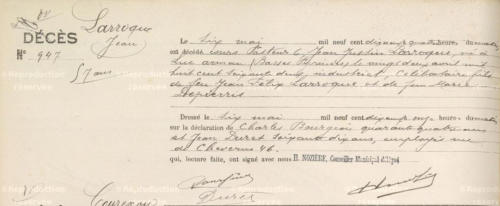 Larroque
Jean
DÉCÈS
N° 947
57 ans
Le six mai mil neuf cent dix quatre heure, du matin
est décédé cours Pasteur 6, Jean Justin Larroque, né à
Luc armau (Basses Pyrénées) le vingt deux avril mil
huit cent soixante deux, industriel, Célibataire, fils
de feu Jean Félix Larroque et de Jeanne Marie
Dressé le six mai mil neuf cent dix heure, du matin
sur la déclaration de Charles Bourgeois quarante quatre ans
et Jean Duret soixante dix ans, employés rue
de Cheverus 46.
qui, lecture faite, ont signé avec nous H. NOZIÈRE, Conseiller Municipal délégué
Duret